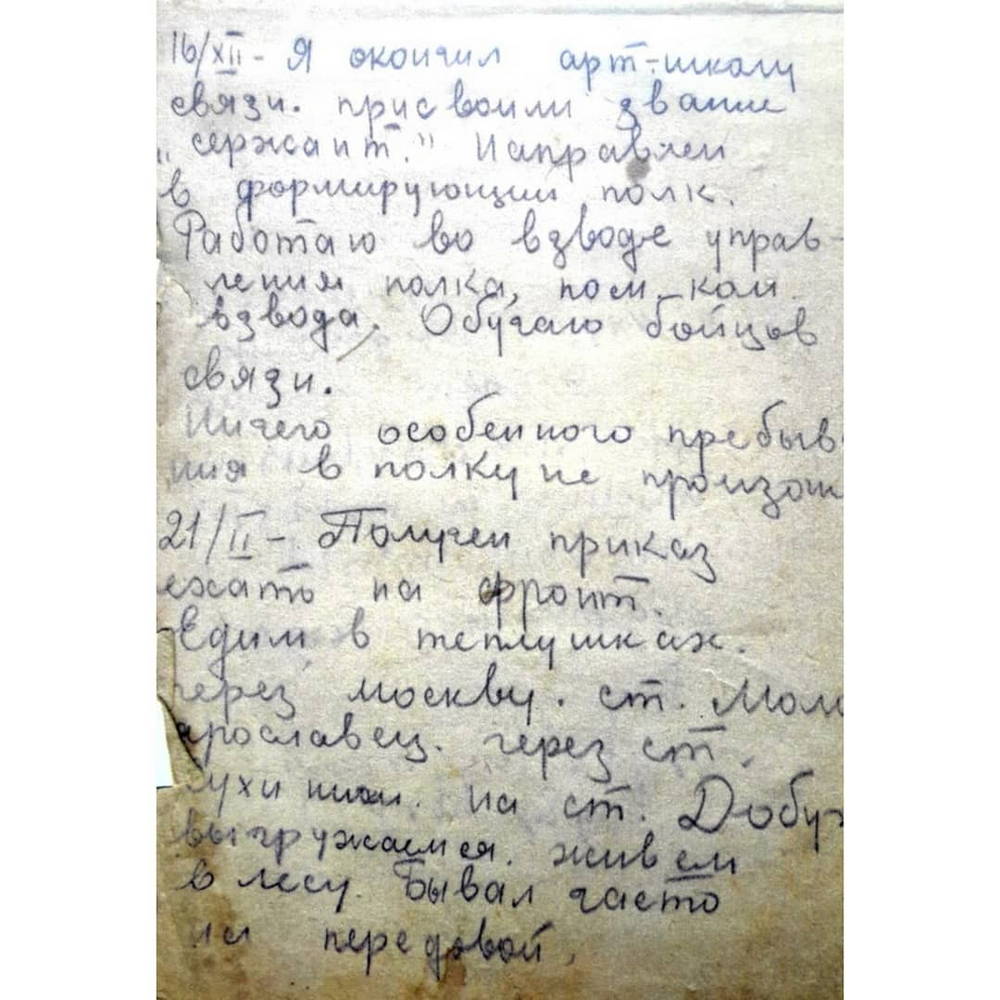 16/XII - Я окончил арт-школу
связи. присвоили звание
„сержант." Направлен
в формирующий полк.
Работаю во взводе управ-
ления полка, пом. ком.
взвода. Обучаю бойцов
связи.
Ничего особенного пребыв
ния в полку не произош
21/II - Получен приказ
ехать на фронт.
Едим в теплушках.
через москву. ст. Мало
ярославец. через ст.
Сухиничи. на ст. Добуж
выгружаемся. живем
в лесу. Бывал часто
на передовой.